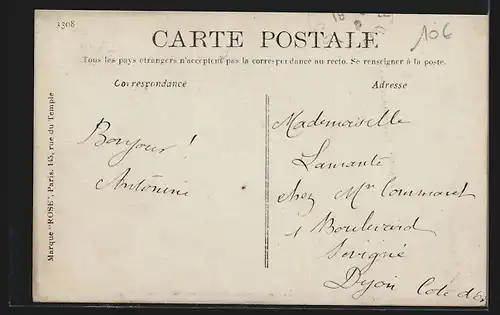 3308
106
CARTE POSTALE
Tous les pays étrangers n'acceptent pas la correspondance au recto. Se renseigner à la poste.
Correspondance
Adresse
Marque "ROSE", Paris, 145, rue du Temple
Bonjour !
Antonine
Mademoiselle
Lamante
chez Mr Commaret
1 Boulevard
Sévigné
Dijon Cote d'or